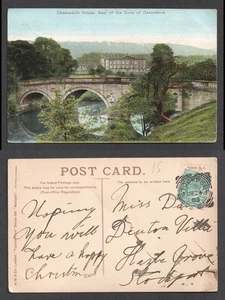 Chatsworth House, Seat of the Duke of Devonshire
POST CARD.
For Inland Postage only
this space may be used for communication.
(Post-office Regulation).
The address to be written here.
15
Hoping
You will
have a happy
Christmas
Miss
Denton Villa
Hazle Grove
Stockport